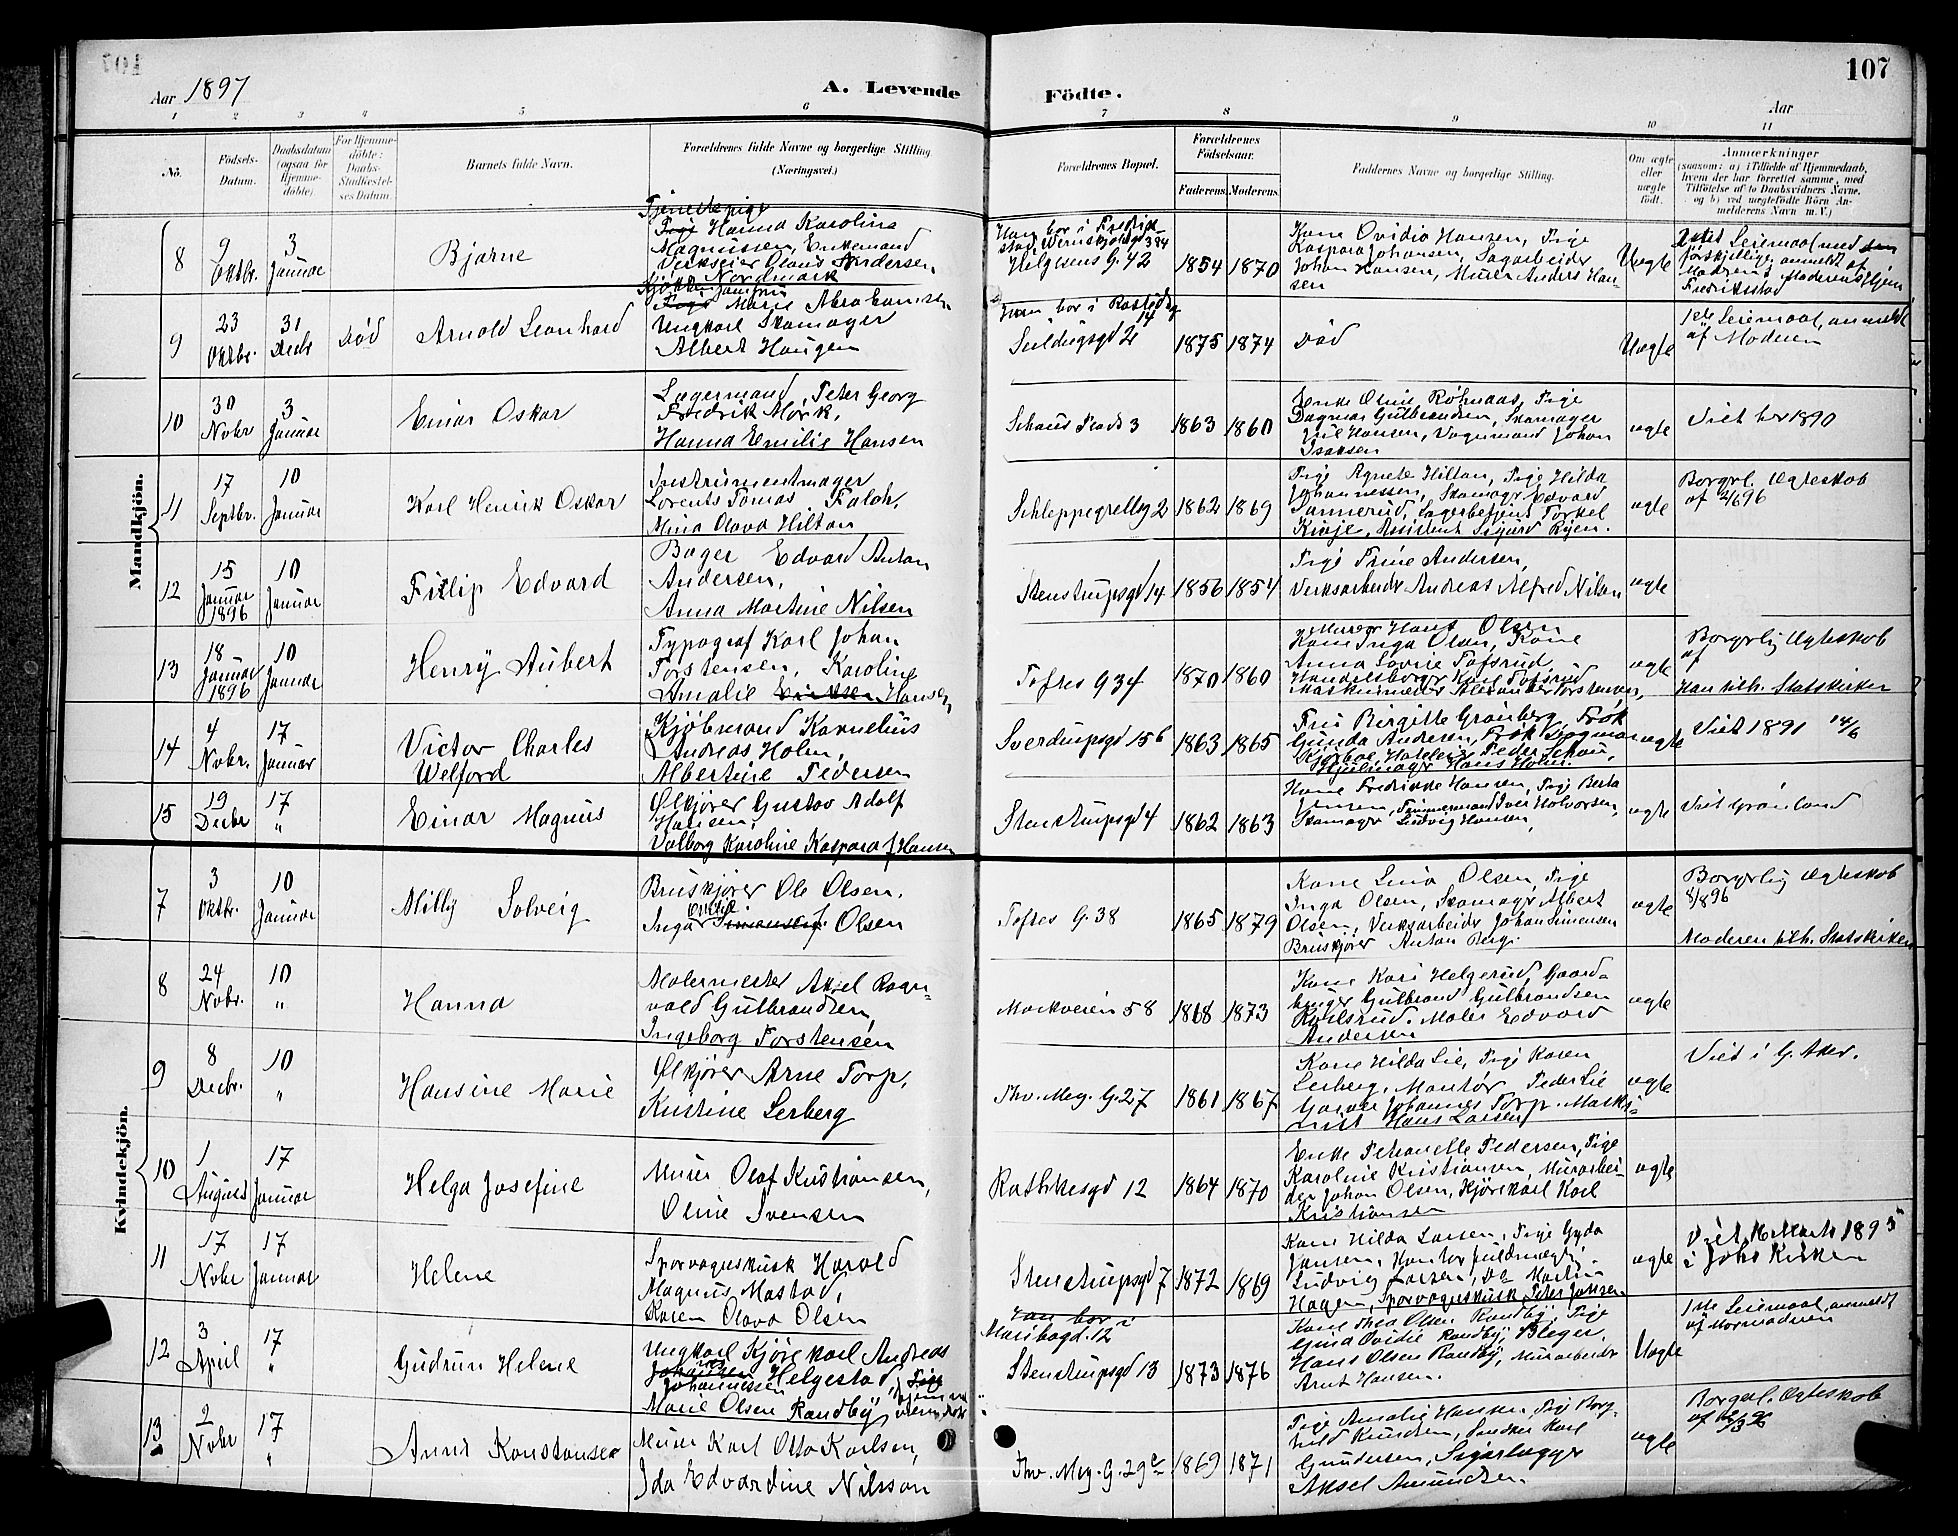 107
Aar 1897
A. Levende Födte.
107
Aar
1 2 3 4 5 6 7 8 9 10 11
No.
Födsels-Datum.
Daabsdatum (ogsaa for Hjemmedöbte).
For Hjemmedöbte: Daabs-Stadfæstelses Datum.
Barnets fulde Navn.
Forældrenes fulde Navne og borgerlige Stilling (Næringsvei.)
Forældrenes Bopæl.
Forældrenes Födselsaar.
Faderens. Moderens.
Faddernes Navne og borgerlige Stilling.
Om ægte eller uægte födt.
Anmærkninger
(saasom: a) i Tilfælde af Hjemmedaab,
hvem der har forrettet samme, med
Tilföielse af to Daabsvidners Navne,
og b) ved uægtefödte Börn Anmelderens Navn m. V.)
Mandkjön.
8
9 Oktbr.
3 Januar
Bjarne
Tjenestepige
Pige Hanna Karolina
Magnussen, Enkemand
Værkseier Olaus Andersen
Nordmark
Han bor i Fredrikstad,
Helgesens G. 42
1854 1870
Kone Ovidia Hansen, Pige
Kaspara Johansen, Sagarbeider
Johan Hansen, Murer Anders Hansen
Uægte
Leiermaal med
forskjellige, anmeldt af
Moderen, Moderens Hjem
Fredriksstad
9
23 Oktbr.
31 Decbr
Död
Arnold Leonhard
Kjøkken Jomfru
Pige Marie Abrahamsen
Ungkarl Skomager
Albert Haugen
Han bor i
14
Seildugsgd 2
1875 1874
Död
Uægte
1ste Leiermaal, anmeldt
af Moderen
10
30 Novbr
3 Januar
Einar Oskar
Lagermand, Peter Georg
Fredrik Mork,
Hanna Emilie Hansen
Schous Plads 3
1863 1860
Enke Oline Röhnaas, Pige
Dagmar Gulbrandsen, Skomager
Emil Hansen, Vognmand Johan
Isaksen
ægte
Viet her 1890
11
17 Septbr.
10 Januar
Karl Henrik Oskar
Instrumentmager
Lorents Tomas Falch,
Mina Olava Hilton
Schleppegrellsg 2
1862 1869
Pige Agnete Hilton, Pige Hilda
Johannessen, Skomagr Edvard
Sannerud, Lagerbetjent Torkel
Kinje, Assistent Sigurd Ryen.
ægte
Borgerl. Ægteskab
af 2/6 96
12
15 Januar 1896
10 Januar
Filip Edvard
Bager Edvard Anton
Andersen,
Anna Martine Nilsen
Stenstrupsgd 14
1856 1854
Pige Trine Andersen,
Verksarbeider Andreas Alfred Nilsen
ægte
13
18 Januar 1896
10 Januar
Henry Aubert
Typograf Karl Johan
Torstensen, Karoline
Amalie Eriksen Hansen,
Toftes G 34
1870 1860
Murer Hans Olsen
Kone Inga Olsen, Kone
Anna Lovise Tofsrud,
Handelsborger Karl Tofsrud
Maskinmester Alexander Torstensen,
ægte
Borgerlig Ægteskab
af
Han tilh. Statskirken
14
4 Nobr.
17 Januar
Victor Charles
Welford
Kjöbmand Kornelius
Andreas Holm,
Albertine Pedersen
Sverdrupsgd 15 b
1863 1865
Fru Birgitte Gronberg, Frök
Gunda Andersen, Frök Dagmar
Kjorboe, Hoteleier Peder Schou,
Hjulmagr Hans Holm
ægte
Viet 1891 14/6
15
19 Decbr
17 "
Einar Magnus
Ølkjörer Gustav Adolf
Hansen,
Valborg Karoline Kaspara f. Hansen
Stenstrupsgd 4
1862 1863
Kone Fredrikke Hansen, Pige Berta
Jensen, Tömmermand Iver Halvorsen,
Skomagr Ludvig Hansen,
ægte
Viet Grönland
Kvindekjön.
7
3 Oktbr.
10 Januar
Milly Solveig
Bruskjörer Ole Olsen,
Inga Simensen f. Olsen
Toftes G. 38
1865 1879
Kone Lina Olsen, Pige
Inga Olsen, Skomagr Albert
Olsen, Verksarbeider Johan Simensen
Bruskjörer Anton Berg.
ægte
Borgerlig Ægteskab
8/8 96
Moderen tilh. Statskirken
8
24 Nobr.
10 "
Hanna
Malermester Aksel Ragnvald
Gulbrandsen,
Ingeborg Torstensen
Markveien 58
1868 1873
Kone Kari Helgerud, Gaardbruger
Gulbrand Gulbrandsen
Karlsrud. Maler Edvard
Andersen
ægte
9
8 Decbr.
10 "
Hansine Marie
Ølkjörer Arne Torp,
Kristine Lerberg
Thv. Mey. G. 27
1861 1867
Kone Hilda Lie, Pige Karen
Lerberg, Montör Peder Lie
Johannes Torp. Maskinist
Hans Larsen
ægte
Viet i G. Aker.
10
1 August
17 Januar
Helga Josefine
Murer Olaf Kristiansen,
Oline Svensen
Rathkesgd 12
1864 1870
Enke Petronelle Pedersen, Pige
Karoline Kristiansen, Murarbeider
Johan Olsen, Kjörekarl Karl
Kristiansen
ægte
11
17 Nobr
17 Januar
Helene
Sporvognskusk Harald
Magnus Mastad,
Karen Olava Olsen
Stenstrupsgd 7
1872 1869
Kone Hilda Larsen, Pige Gyda
Jansen, Kontorfuldmægtig
Ludvig Larsen, Do Martin
Hagen, Sporvognskusk Peter Johsen
ægte
Viet Marts 1895
i Johs Kirken
12
3 April
17 "
Gudrun Helene
Ungkarl Kjörekarl Andreas
Johannessen Helgestad, Pige
Marie Olsen Randby,
Han bor i
Maribogd. 12
Stenstrupsgd 13
1873 1876
Kone Thea Olsen Randby, Pige
Gina Ovidie Randby, Bleger,
Hans Olsen Randby, Murarbeider
Arnt Hansen.
Uægte
1ste Leiermaal, anmeldt
af Mormoderen
13
2 Nobr
17 "
Anna Konstanse
Murer Karl Otto Karlsen,
Ida Edvardine Nilsson
Thv. Mey. G. 29 c
1869 1871
Pige Amalie Hansen, Pige Borghild
Knudsen, Snedker Karl
Gundersen, Stenhugger
Aksel Amundsen.
ægte
Borgerl. Ægteskab